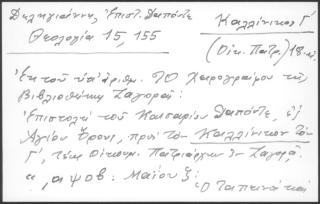 Δεληγιάννη, Ἐπιστ. Δαπόντε Καλλίνικος Γ΄
Θεολογία 15, 155 (Οἰκ. Πατρ.) 18-
Ἐκ τοῦ ὑπ' ἀριθμ. 70 χειρογράφου τῆς
Βιβλιοθήκης Ζαγορᾶς:
Ἐπιστολή τοῦ Καισαρίου Δαπόντε, ἐξ
Ἁγίου Ὄρους, πρός τόν Καλλίνικον τόν
Γ΄, τέως Οἰκουμ. Πατριάρχην ἐν Ζαγορᾷ,
,αψοβ: Μαΐου ζ:
Ὁ ταπεινά καί